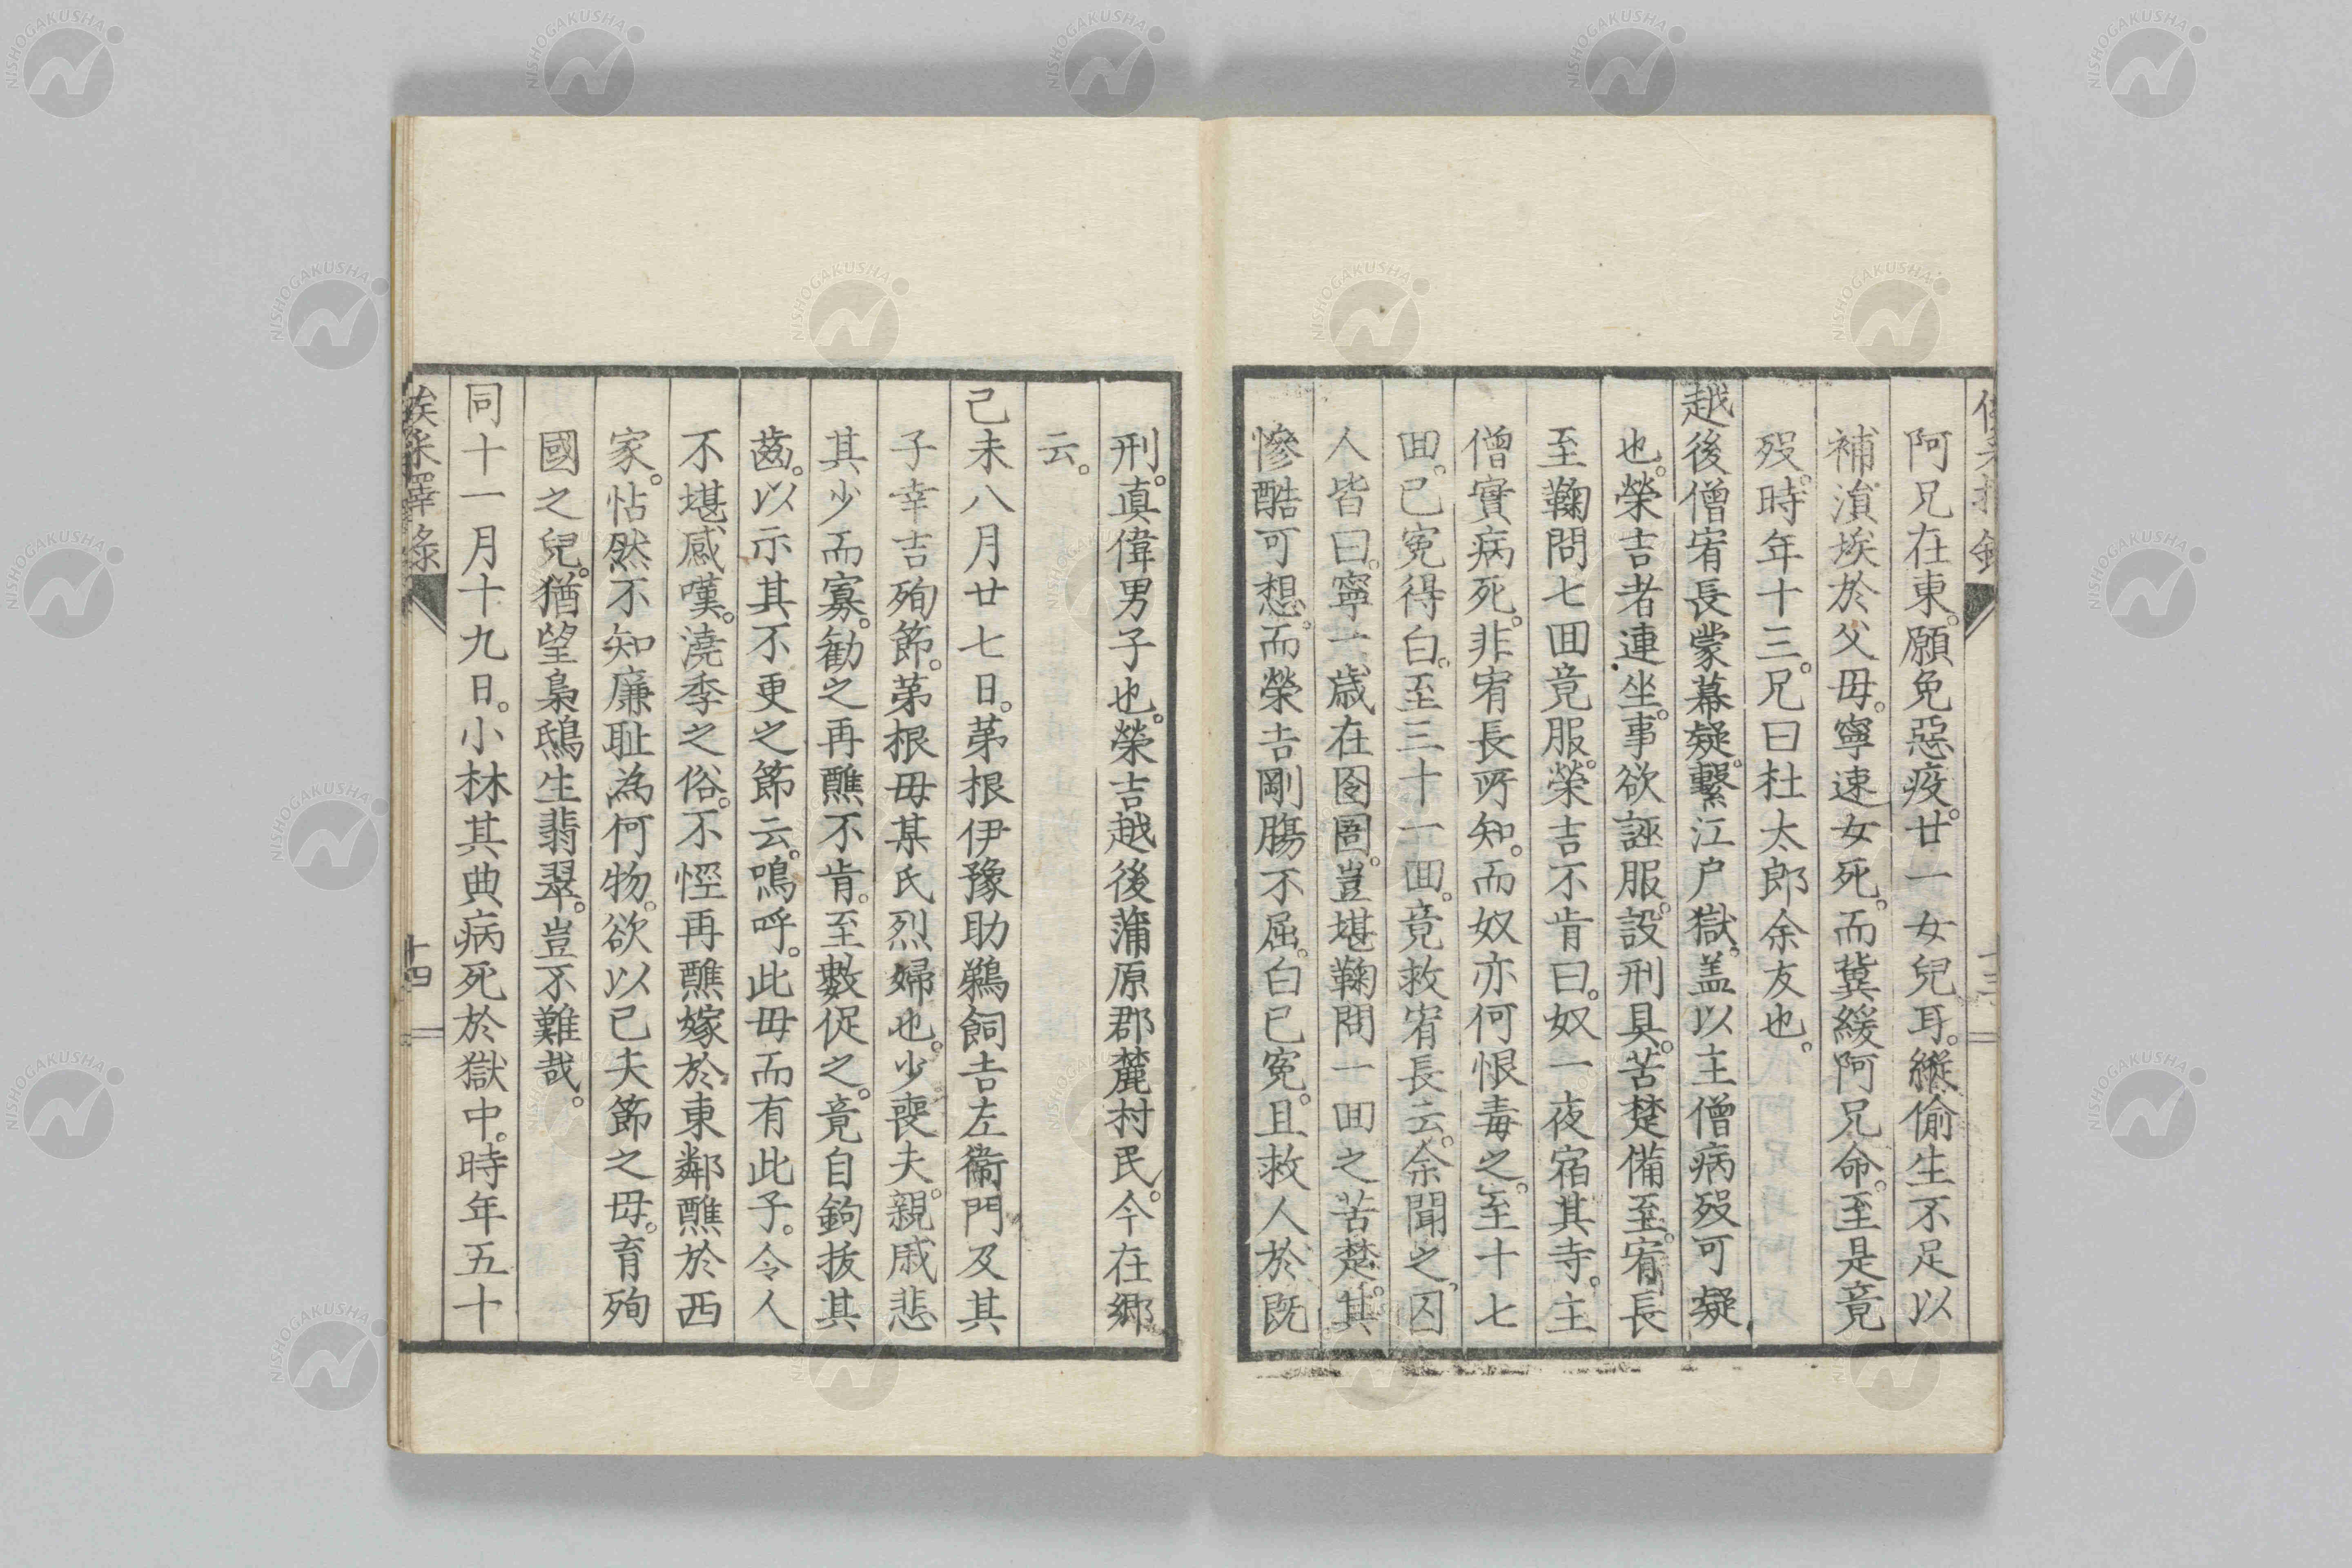 阿兄在東。願免惡疫。廿一女兒耳。縱偷生不足以
補涓埃於父毋。寧速女死。而冀緩阿兄命。至是竟
歿。時年十三。兄曰杜太郎余友也。
越後僧宥長蒙幕疑。繫江户獄。盖以主僧病歿可疑
也。榮吉者連坐。事欲誣服。設刑具。苦楚備至。宥長
至鞠問七回竟服。榮吉不肯曰。奴一夜宿其寺。主
僧實病死。非宥長所知。而奴亦何恨毒之。至十七
回。已冤得白。至三十一回。竟救宥長云。余聞之。囚
人皆曰。寧一歲在囹圄。豈堪鞠問一回之苦楚。其
慘酷可想。而榮吉剛膓不屈。白已冤。且救人於既
十三
刑。真偉男子也。榮吉越後蒲原郡麓村民。今在鄉
云。
己未八月廿七日。茅根伊豫助鵜飼吉左衞門及其
子幸吉殉節。茅根毋某氏烈婦也。少喪夫。親戚悲
其少而寡。勧之再醮不肯。至數促之。竟自鉤拔其
齒。以示其不更之節云。嗚呼。此毋而有此子。令人
不堪感嘆。澆季之俗。不怪再醮嫁於東鄰醮於西
家。恬然不知廉耻為何物。欲以已夫節之毋。育殉
國之兒。猶望梟鴟生翡翠。豈不難哉。
同十一月十九日。小林其典病死於獄中。時年五十
十四
NISHOGAKUSHA